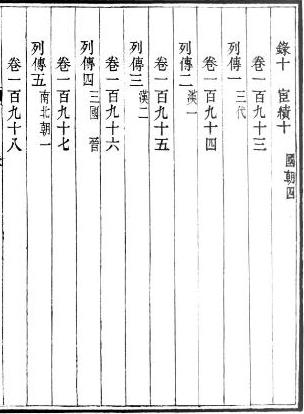 錄十 宦績十 國朝四
卷一百九十三
列傳一 三代
卷一百九十四
列傳二 漢一
卷一百九十五
列傳三 漢二
卷一百九十六
列傳四 三國 晉
卷一百九十七
列傳五 南北朝一
卷一百九十八